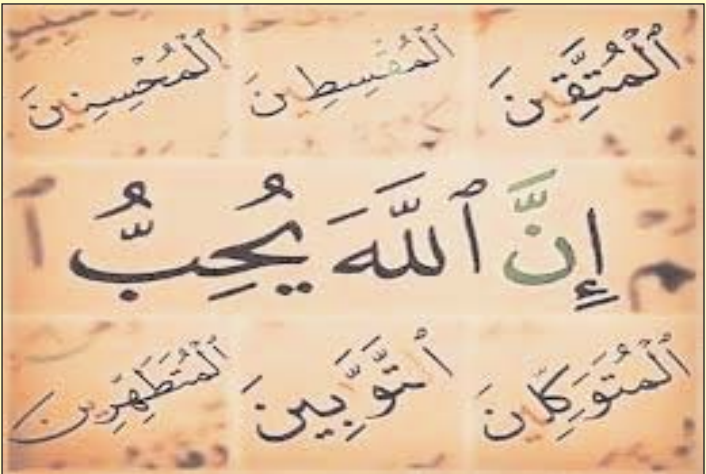 ٱلْمُتَّقِينَ ٱلْمُقْسِطِينَ ٱلْمُحْسِنِينَ
إِنَّ ٱللَّهَ يُحِبُّ
ٱلْمُتَوَكِّلِينَ ٱلتَّوَّٰبِينَ ٱلْمُتَطَهِّرِينَ